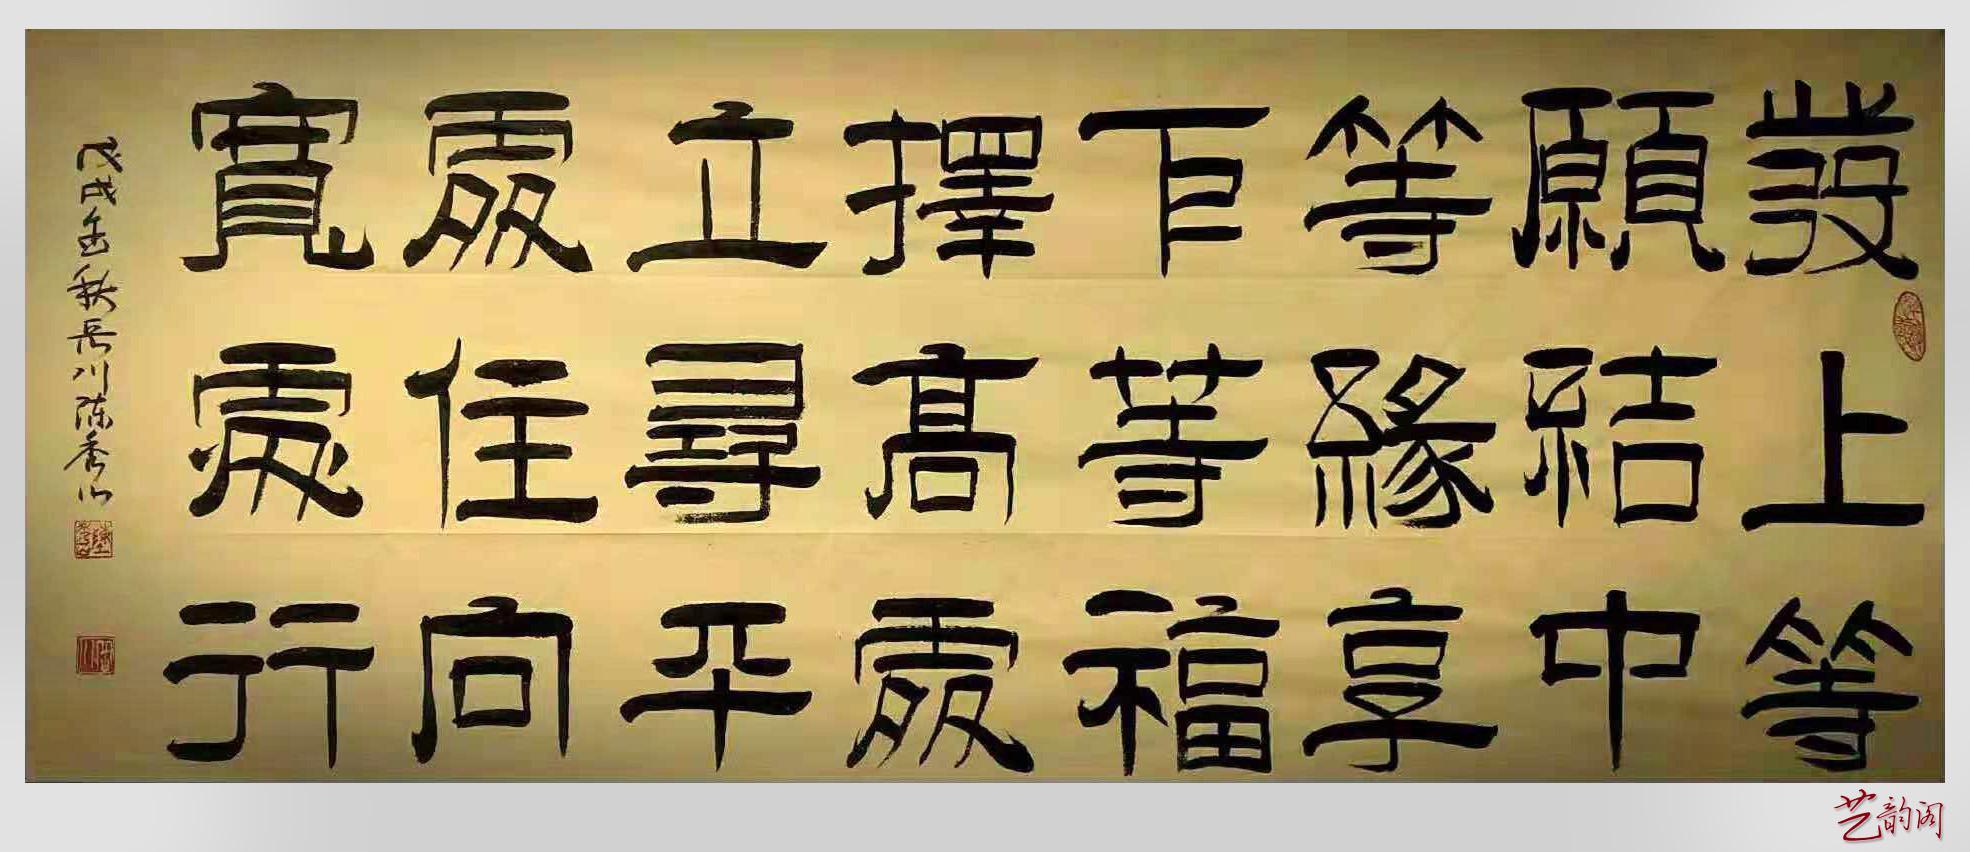 發上等
願結中
等緣享
下等福
擇高處
立尋平
處住向
寬處行
戊戌金秋 陈秀山
艺韵阁